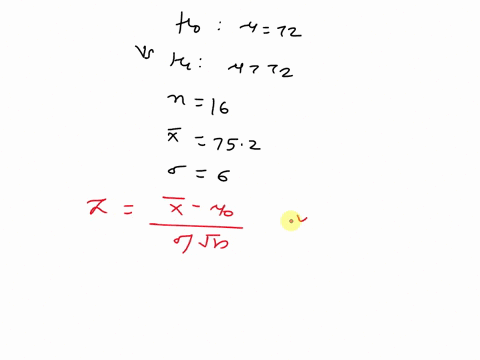 H₀ : μ = 72
vs H₁ : μ > 72
n = 16
x̄ = 75.2
σ = 6
z = x̄ - μ₀ / σ/√n